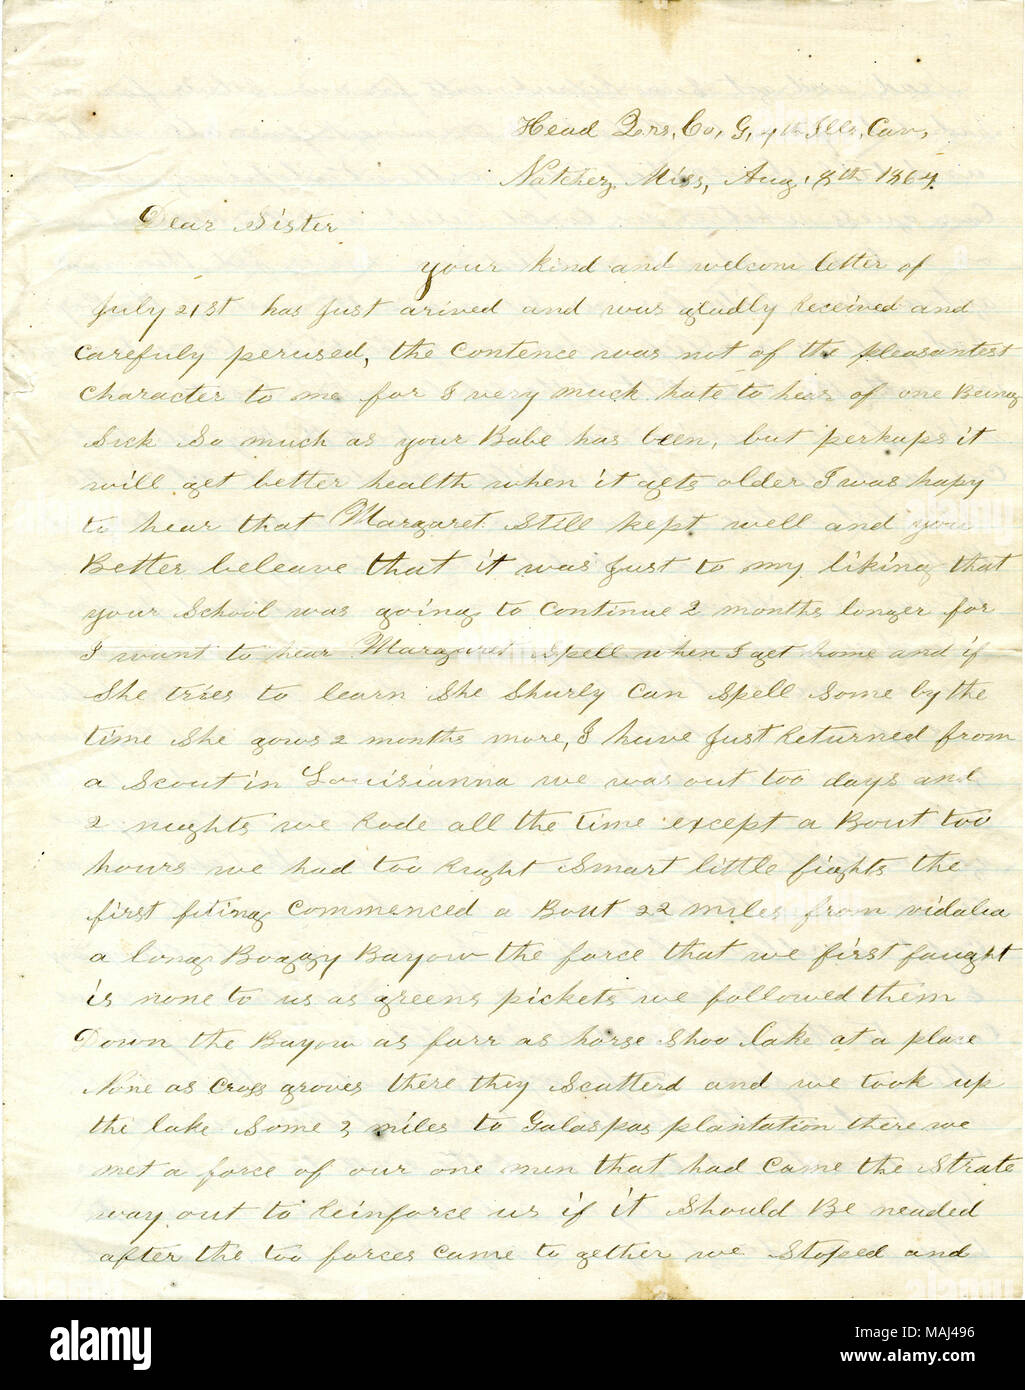 Head Qrs, Co, G, 4th Ills, Cav,
Natchez, Miss, Aug, 8th 1864.
Dear Sister
your kind and welcom letter of
July 21st has Just arived and was gladly Received and
carefuly perused, the contence was not of the pleasantest
character to me for I very much hate to hear of one Being
Sick So much as your Babe has been, but perhaps it
will get better health when it gets older I was hapy
to hear that Margaret Still kept well and you
Better beleave that it was Just to my liking that
your School was going to continue 2 months longer for
I want to hear Margaret spell when I get home and if
She tries to learn She Shurly can spell Some by the
time She gows 2 months more, I have Just Returned from
a Scout in Louisianna we was out too days and
2 nights we Rode all the time except a Bout too
hours we had too Right Smart little fights the
first fiting commenced a Bout 22 miles from vidalia
a long Boggy Bayow the force that we first faught
is none to us as greens pickets we followed them
Down the Bayow as farr as horse Shoo lake at a place
None as Cross groves there they Scatterd and we took up
the lake Some 3 miles to Galaspas plantation there we
met a force of our one men that had came the Strate
way out to Reinforce us if it Should Be neaded
after the too forces came to gether we Stoped and
alamy
Image ID: MAJ496
www.alamy.com